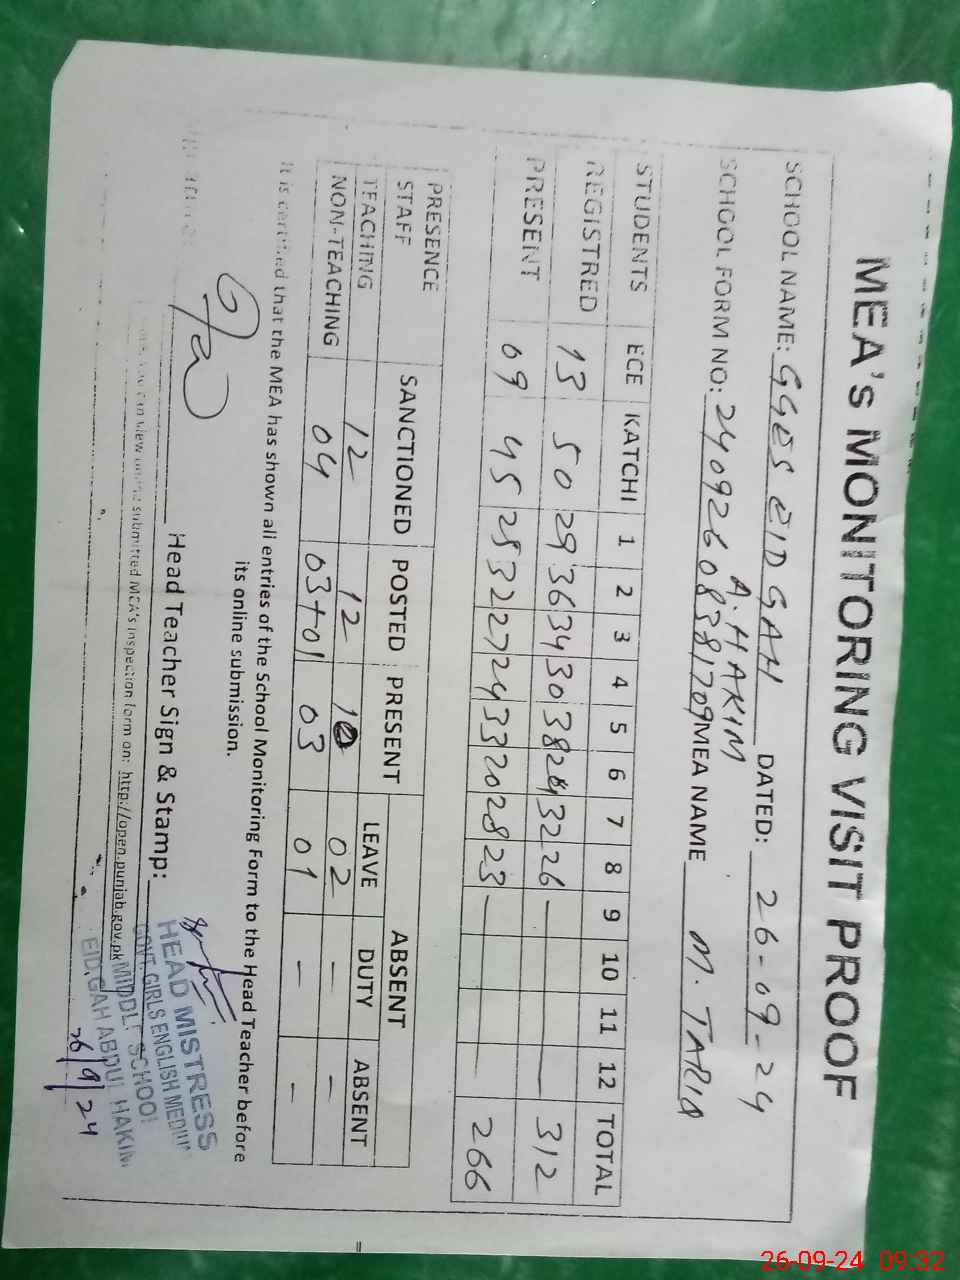 MEA's MONITORING VISIT PROOF
SCHOOL NAME: GGES EID GAH A. HAKIM DATED: 26-09-24
SCHOOL FORM NO: 24092608381709 MEA NAME M. TARIQ
STUDENTS ECE KATCHI 1 2 3 4 5 6 7 8 9 10 11 12 TOTAL
REGISTRED 13 50 29 36 34 30 38 24 32 26 — 312
PRESENT 09 45 25 32 27 24 33 20 28 23 — 266
PRESENCE ABSENT
STAFF SANCTIONED POSTED PRESENT LEAVE DUTY ABSENT
TEACHING 12 12 10 02 - -
NON-TEACHING 04 03+01 03 01 - -
It is certified that the MEA has shown all entries of the School Monitoring Form to the Head Teacher before
its online submission.
Head Teacher Sign & Stamp:
HEAD MISTRESS
GOVT. GIRLS ENGLISH MEDIU
MIDDLE SCHOOL
EID GAH ABDUL HAKIM
26/9/24
can view online submitted MCA's inspection form on: http://open.punjab.gov.pk
26-09-24 09:32